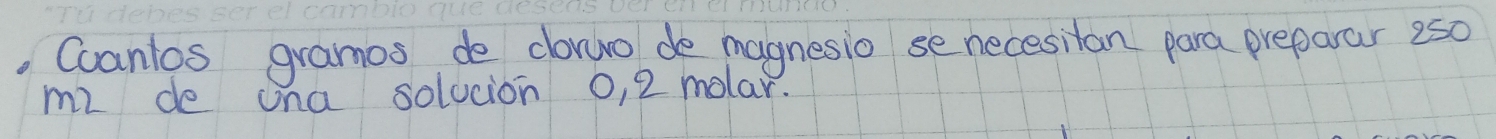 "Tú debes ser el cambio que deseas ver en el mundo.
. Cuantos gramos de cloruro de magnesio se necesitan para preparar 250
ml de una solución 0,2 molar.